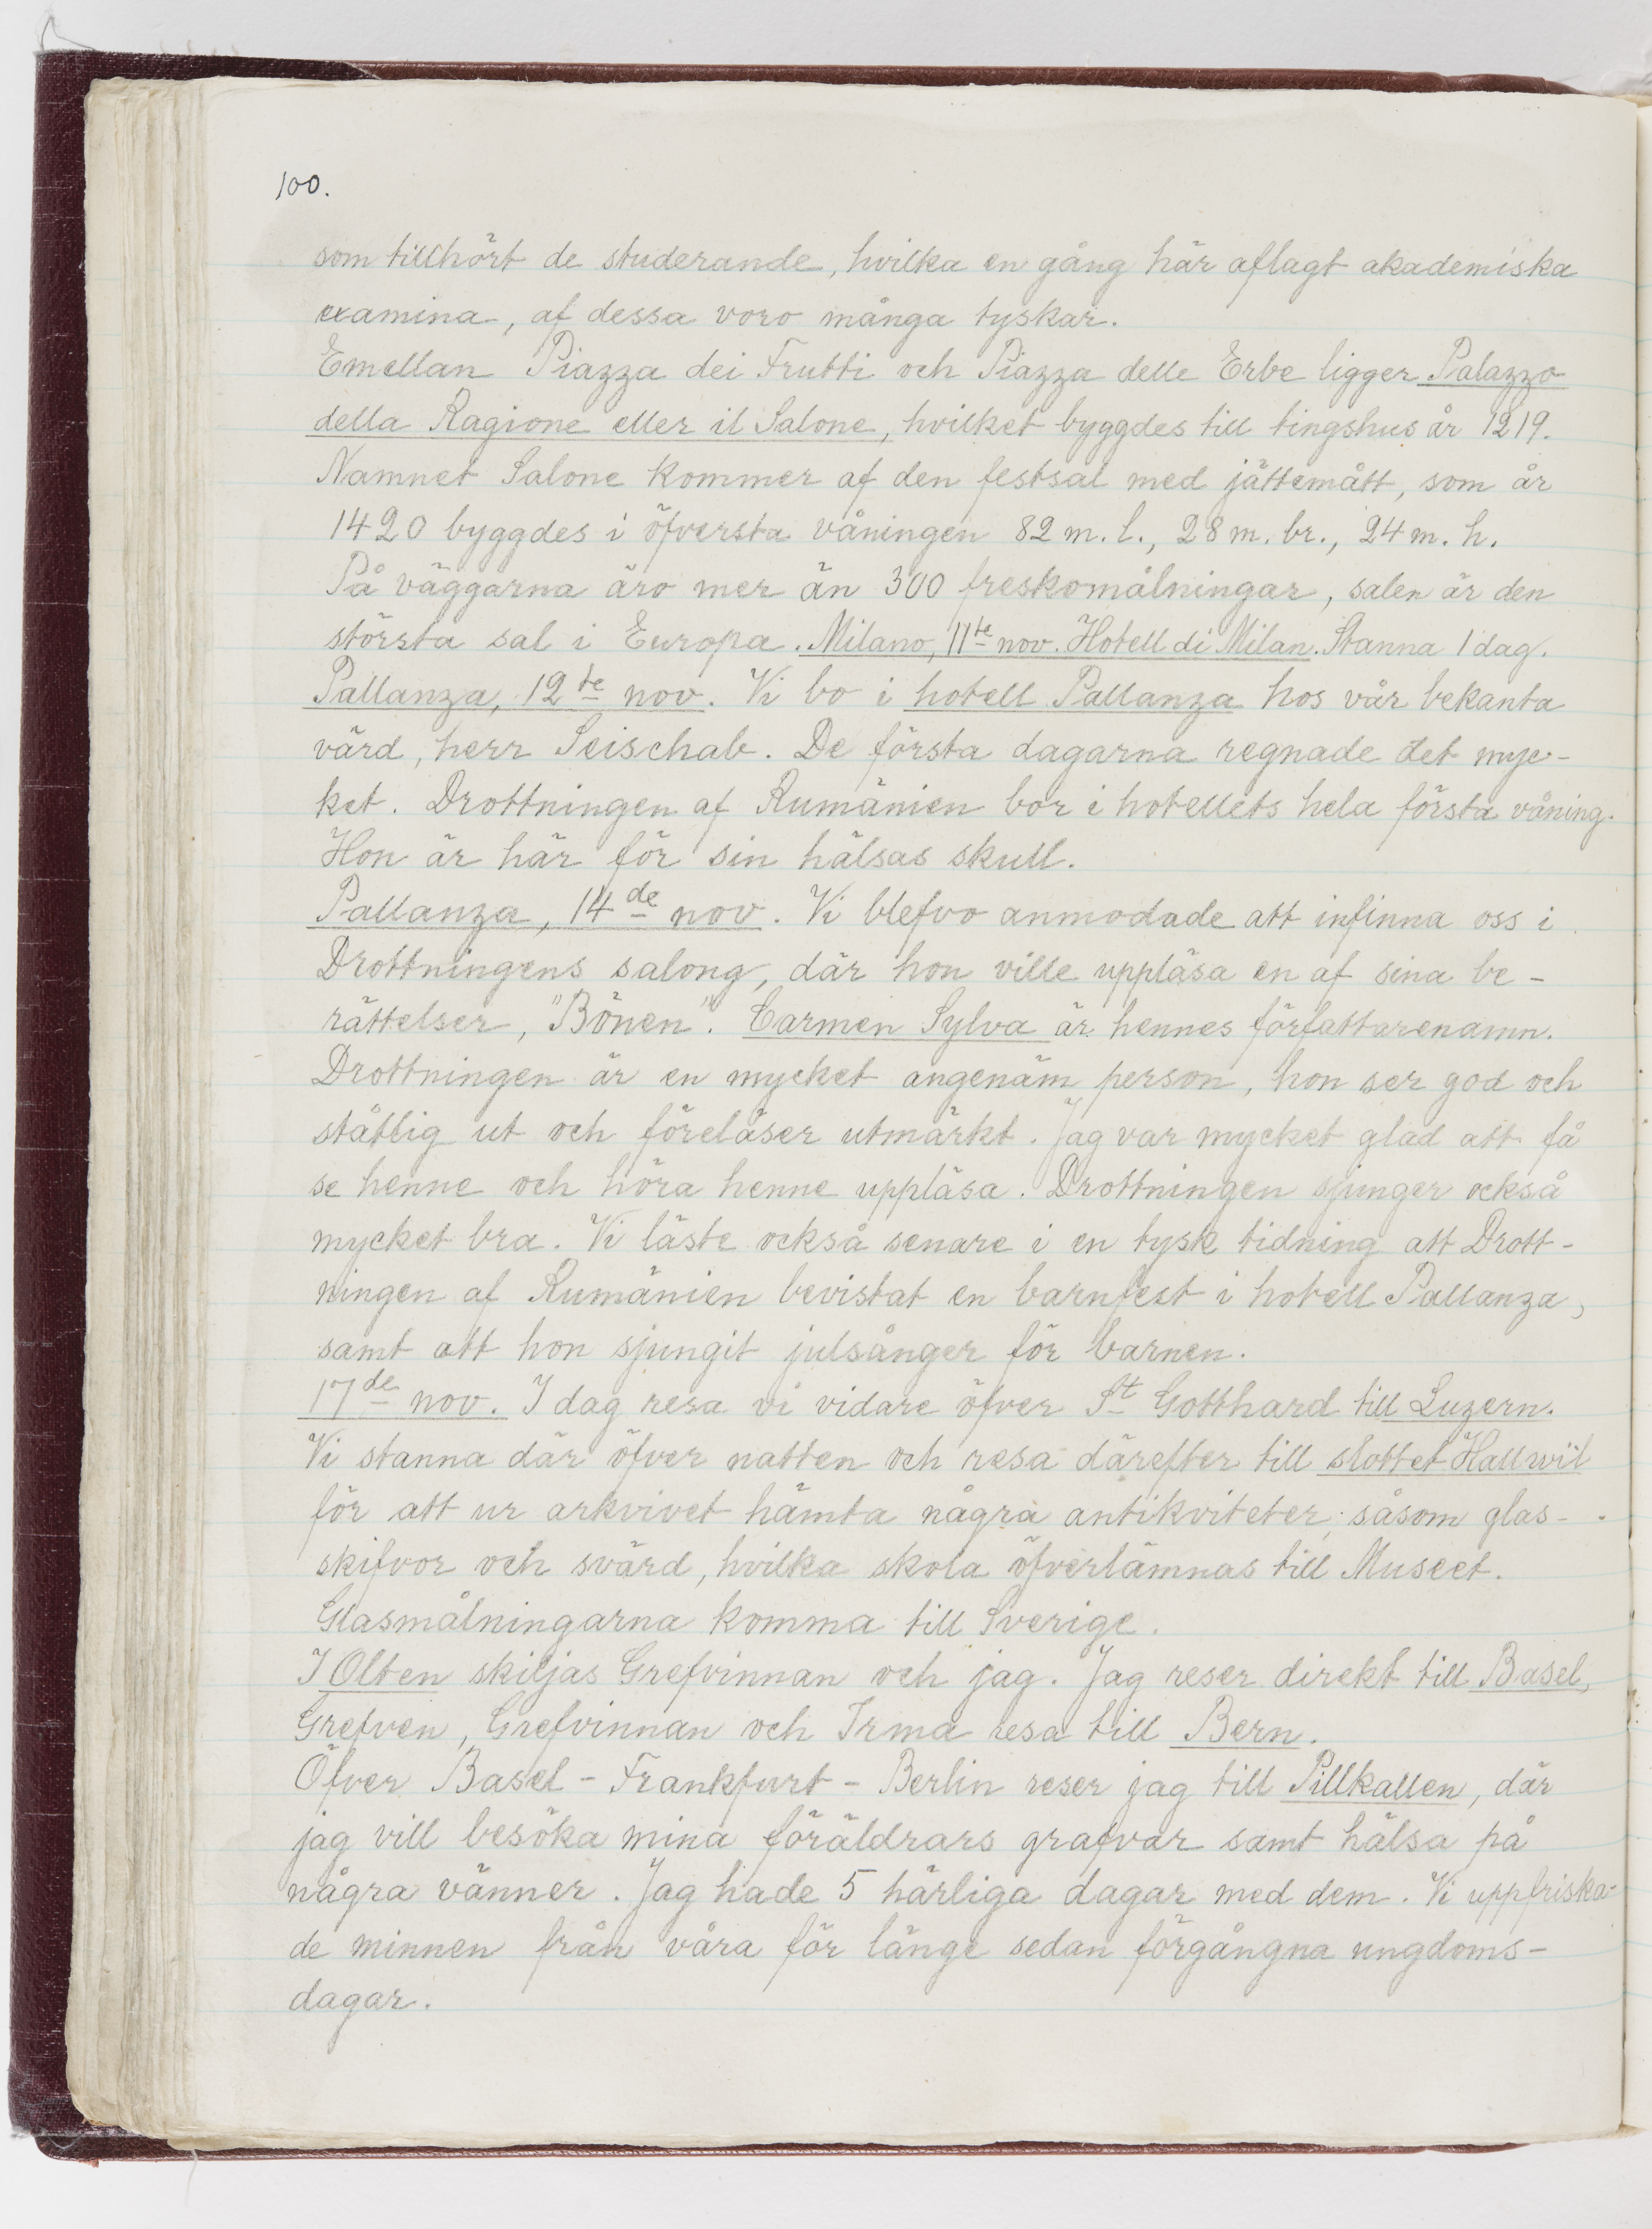 100.
som tillhört de studerande, hvilka en gång här aflagt akademiska
examina, af dessa voro många tyskar.
Emellan Piazza dei Frutti och Piazza delle Erbe ligger Palazzo
della Ragione eller il Salone, hvilket byggdes till tingshus år 1219.
Namnet Salone kommer af den festsal med jättemått, som år
1420 byggdes i öfversta våningen 82 m. l., 28 m. br., 24 m. h.
På väggarna äro mer än 300 freskomålningar, salen är den
största sal i Europa. Milano, 11te nov. Hotell di Milan. Stanna 1 dag.
Pallanza, 12te nov. Vi bo i hotell Pallanza hos vår bekanta
värd, herr Seischab. De första dagarna regnade det myc-
ket. Drottningen af Rumänien bor i hotellets hela första våning.
Hon är här för sin hälsas skull.
Pallanza, 14de nov. Vi blefvo anmodade att infinna oss i
Drottningens salong, där hon ville uppläsa en af sina be-
rättelser, "Bönen". Carmen Sylva är hennes författarenamn.
Drottningen är en mycket angenäm person, hon ser god och
ståtlig ut och föreläser utmärkt. Jag var mycket glad att få
se henne och höra henne uppläsa. Drottningen sjunger också
mycket bra. Vi läste också senare i en tysk tidning att Drott-
ningen af Rumänien bevistat en barnfest i hotell Pallanza,
samt att hon sjungit julsånger för barnen.
17de nov. I dag resa vi vidare öfver St Gotthard till Luzern.
Vi stanna där öfver natten och resa därefter till slottet Hallwil
för att ur arkvivet hämta några antikviteter, såsom glas-
skifvor och svärd, hvilka skola öfverlämnas till Museet.
Glasmålningarna komma till Sverige.
I Olten skiljas Grefvinnan och jag. Jag reser direkt till Basel,
Grefven, Grefvinnan och Irma resa till Bern.
Öfver Basel - Frankfurt - Berlin reser jag till Pillkallen, där
jag vill besöka mina föräldrars grafvar samt hälsa på
några vänner. Jag hade 5 härliga dagar med dem. Vi uppfriska-
de minnen från våra för länge sedan förgångna ungdoms-
dagar.